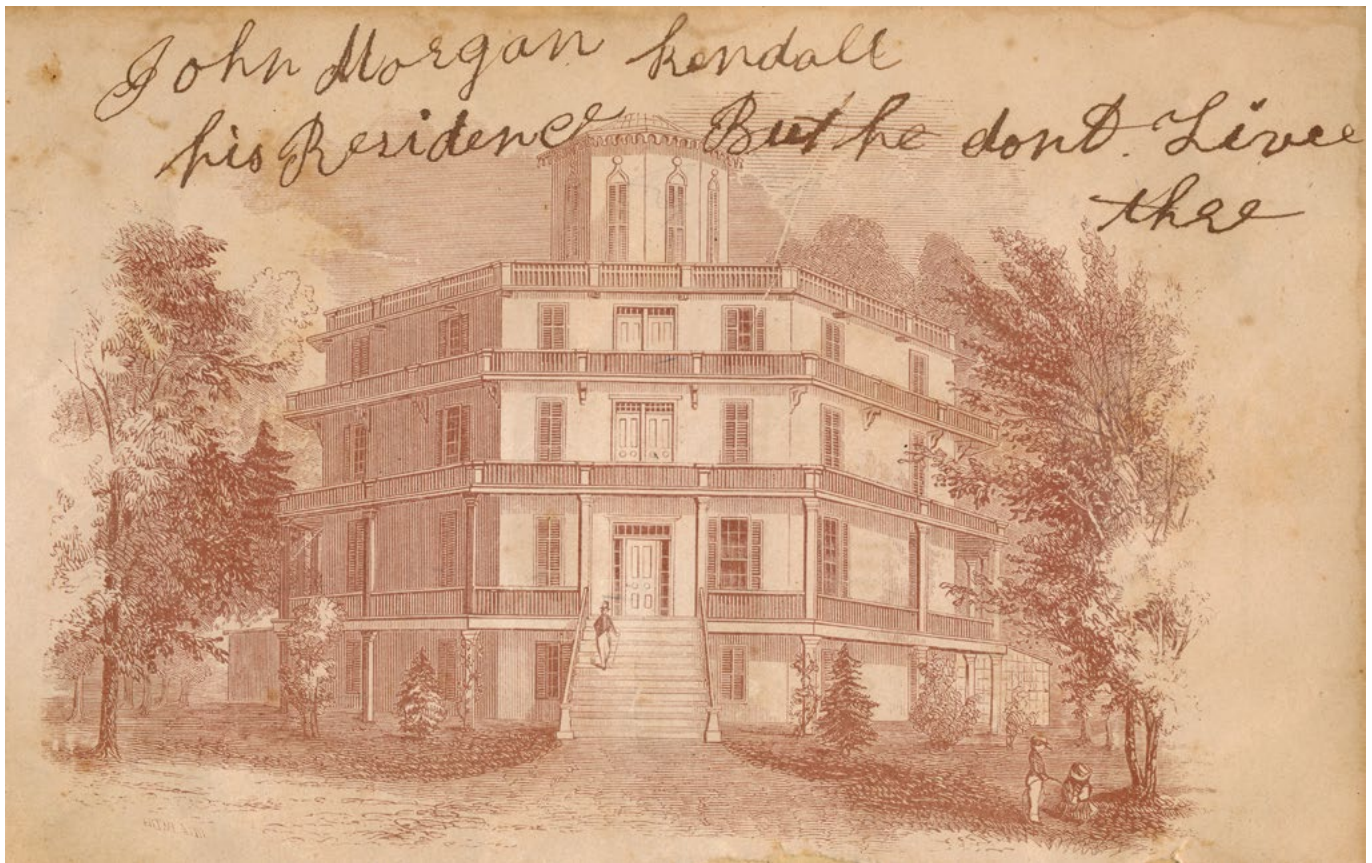 John Morgan Kendall
his Residence But he dont Livee
thee